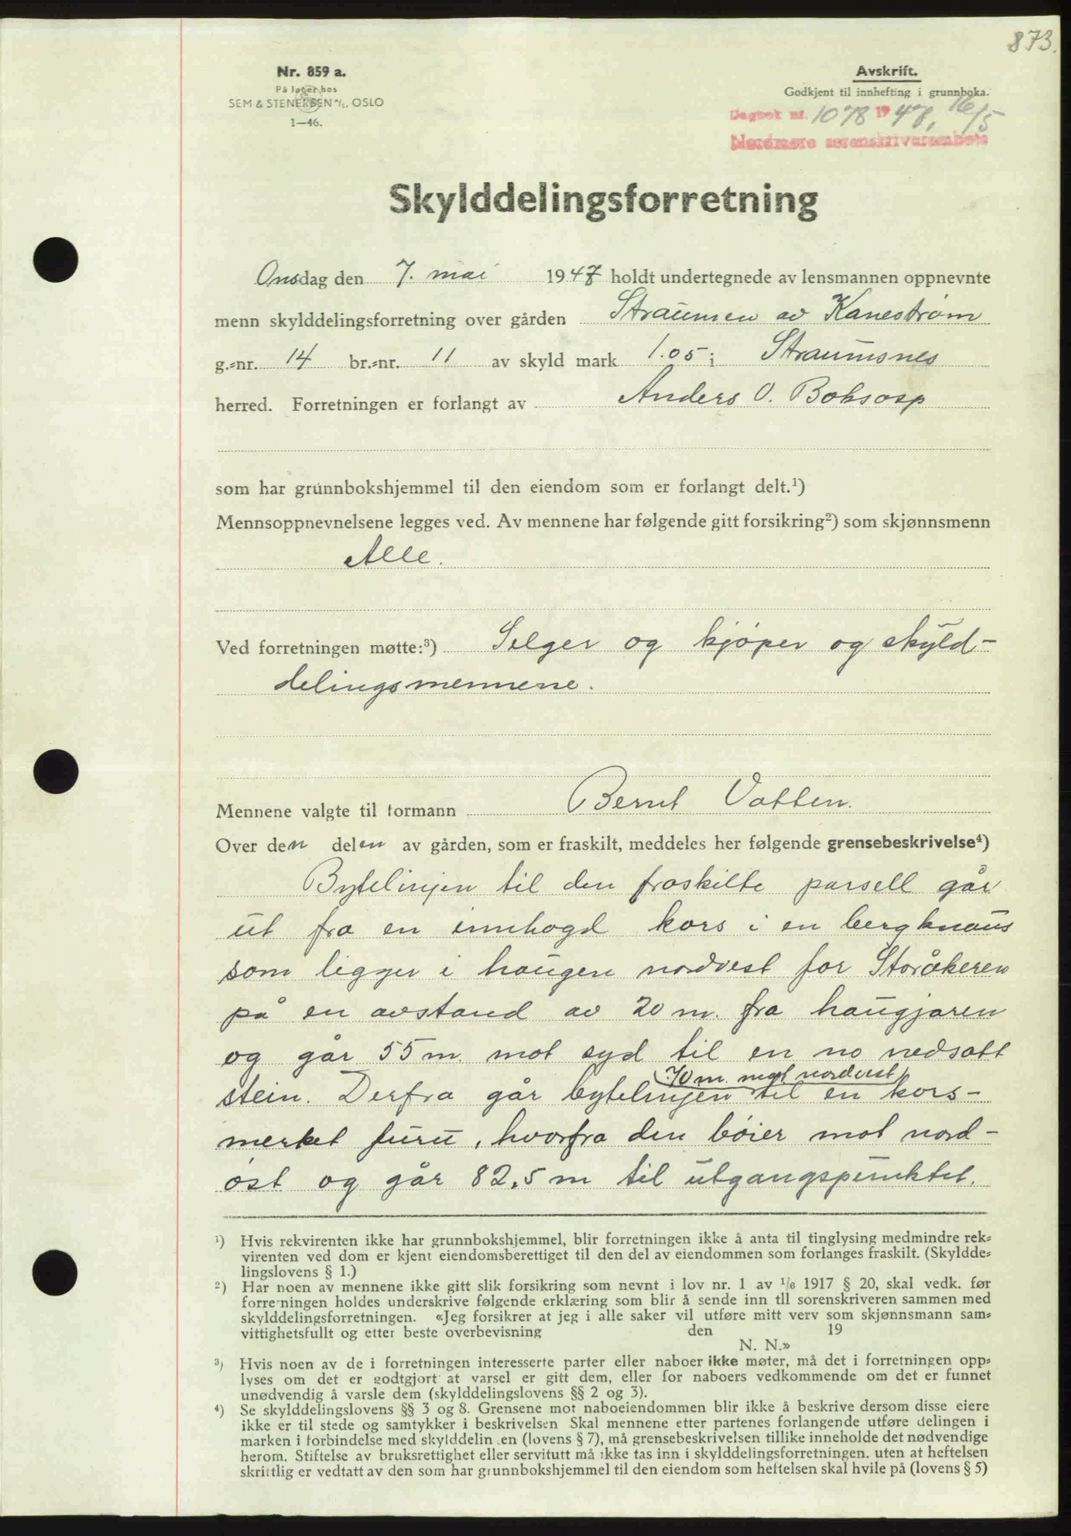 873.
Nr. 859 a.
På lager hos
SEM & STENERSEN A/S, OSLO
1—46.
Avskrift.
Godkjent til innhefting i grunnboka.
Dagbok nr. 1078 1947, 16/5
Nordmøre sorenskriverembete
Skylddelingsforretning
Onsdag den 7. mai 1947 holdt undertegnede av lensmannen oppnevnte
menn skylddelingsforretning over gården Straumen av Kanestrøm
g.-nr. 14 br.-nr. 11 av skyld mark 1.05 i Straumsnes
herred. Forretningen er forlangt av Anders O. Boksasp
som har grunnbokshjemmel til den eiendom som er forlangt delt.¹)
Mennsoppnevnelsene legges ved. Av mennene har følgende gitt forsikring²) som skjønnsmenn
Alle.
Ved forretningen møtte:³) Selger og kjöper og skyld-
delingsmennene.
Mennene valgte til formann Bernt Vatten.
Over den delen av gården, som er fraskilt, meddeles her følgende grensebeskrivelse⁴)
Bytelinjen til den fraskilte parsell går
ut fra en innhogd kors i en bergknaus
som ligger i haugen nordvest for Storåkeren
på en avstand av 20 m. fra haugjaren
og går 55 m. mot syd til en no nedsatt
70 m. mot nordvest
stein. Derfra går bytelinjen til en kors-
merket furu, hvorfra den böier mot nord-
öst og går 82,5 m til utgangspunktet.
¹) Hvis rekvirenten ikke har grunnbokshjemmel, blir forretningen ikke å anta til tinglysing medmindre rek-
virenten ved dom er kjent eiendomsberettiget til den del av eiendommen som forlanges fraskilt. (Skyldde-
lingslovens § 1.)
²) Har noen av mennene ikke gitt slik forsikring som nevnt i lov nr. 1 av 1/6 1917 § 20, skal vedk. før
forretningen holdes underskrive følgende erklæring som blir å sende inn til sorenskriveren sammen med
skylddelingsforretningen. «Jeg forsikrer at jeg i alle saker vil utføre mitt verv som skjønnsmann sam-
vittighetsfullt og etter beste overbevisning den 19
N. N.»
³) Hvis noen av de i forretningen interesserte parter eller naboer ikke møter, må det i forretningen opp-
lyses om det er godtgjort at varsel er gitt dem, eller for naboers vedkommende om det er funnet
unødvendig å varsle dem (skylddelingslovens §§ 2 og 3).
⁴) Se skylddelingslovens §§ 3 og 8. Grensene mot naboeiendommen blir ikke å beskrive dersom disse eiere
ikke er til stede og samtykker i beskrivelsen Skal mennene etter partenes forlangende utføre delingen i
marken i forbindelse med skylddelin en (lovens § 7), må grensebeskrivelsen tillike inneholde det nødvendige
herom. Stiftelse av bruksrettighet eller servitutt må ikke tas inn i skylddelingsforretningen. uten at heftelsen
skriftlig er vedtatt av den som har grunnbokshjemmel til den eiendom som heftelsen skal hvile på (lovens § 5)